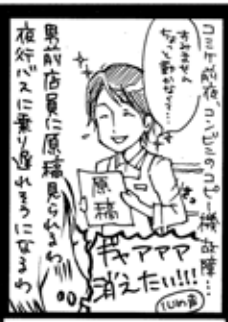 コミケ前夜、コンビニのコピー機故障…
すみません
ちょっと動かなくて…
原稿
男前店員に原稿見られるわ
夜行バスに乗り遅れそうになるわ
ギャアアア
消えたい!!!